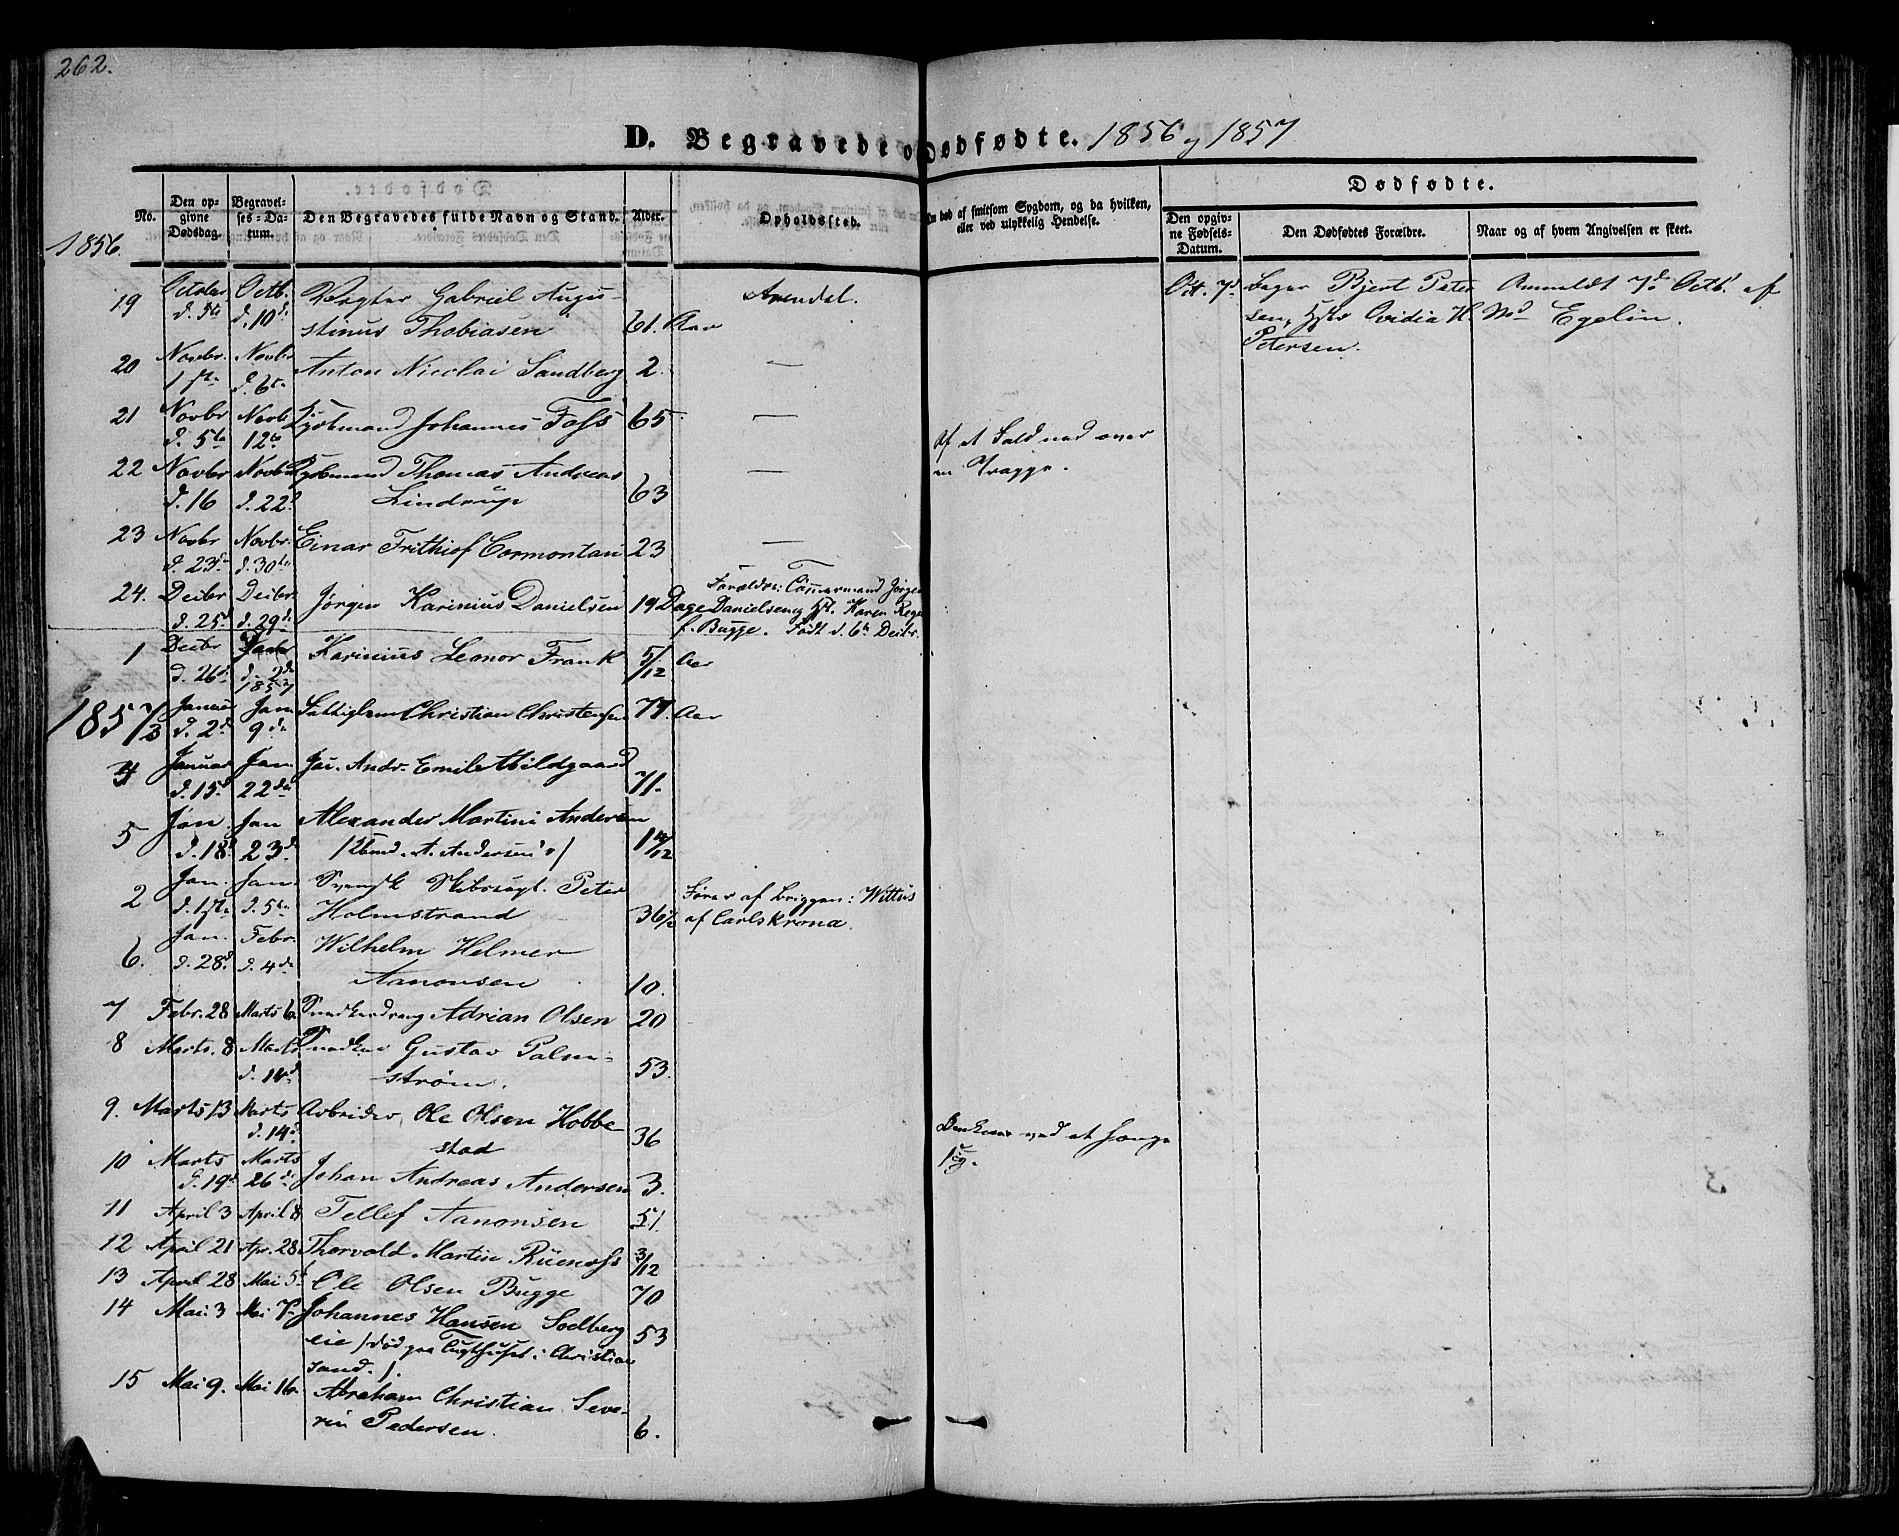 262.
D. Begravede o Dødfødte. 1856 og 1857
Dødfødte.
No.
Den opgivne Dødsdag.
Begravelses-Datum.
Den Begravedes fulde Navn og Stand.
Alder.
Opholdssted.
død af smitsom Sygdom, og da hvilken, eller ved ulykkelig Hendelse.
Den opgivne Fødsels-Datum.
Den Dødfødtes Forældre.
Naar og af hvem Angivelsen er skeet.
1856.
19 October Octb. Vægter Gabriel Augu- Arendal. Oct. 7d Bager Bjert Peter Anmeldt 7d Octb. af
d. 5te d. 10d stinus Thobiasen 61. Aar sen, Hst. Ovidia H. Md Egelin.
Petersen.
20 Novbr. Novbr Anton Nicolai Sandberg 2. —
1ste d. 6te
21 Novbr Novb Johannes Foss 65 —
d. 5te 12te af at fald ned over
22 Novbr Novbr Thomas Andreas — en Trappe.
d. 16 d. 22d Lindrup 63
23 Novbr Novbr. Einar Frithiof Cormontan 23 —
d. 23de d. 30te
24. Decbr Decbr. Jørgen Karinius Danielsen 19 Dage Forældre: Tømmermand Jørgen
d. 25d d. 29d Danielsen og Hst. Karen
f. Bugge. Født d. 6te Decbr.
1 Decbr Karinius Leonor Frank 5/12 Aar
d. 26d d. 2d
1857
1857
3 Januar Jan Christian Christensen 77. Aar
d. 2d 9de
4 Januar Jan. Andr. Emil Abildgaard
d. 15d 22de 71.
5 Jan. Jan Alexander Martini Andersen
d. 18d 23d. A. Andersens 1
2 Jan. Jan. Svensk Skibscapt. Peter Fører af briggen: Wittus
d. 1ste d. 5te Holmstrand 36½ af Carlskrona.
6. Jan. Febr. Wilhelm Helmer
d. 28d d. 4de Aanonsen 10.
7 Febr. 28 Marts 6. Snedkerdreng Adrian Olsen 20
8 Marts. 8 Marts Snedker Gustav Palm-
d. 14d strøm. 53.
9. Marts 13 Marts Arbeider Ole Olsen Hobbe-
d. 14d stad 36 ved at hænge
sig.
10 Marts Marts Johan Andreas Andersen 3.
d. 19d 26de
11 April 3 April 8 Tellef Aanonsen 51.
12 April 21 Apr. 28 Thorvald Martin Ruenæss 3/12
13 April 28 Mai 5t Ole Olsen Bugge 70
14 Mai 3 Mai 7de Johannes Hansen Soelberg 53
eie / død paa Tugthuset i Christian
sand. /.
15 Mai 9. Mai 16. Abraham Christian Seve-
rin Pedersen. 6.